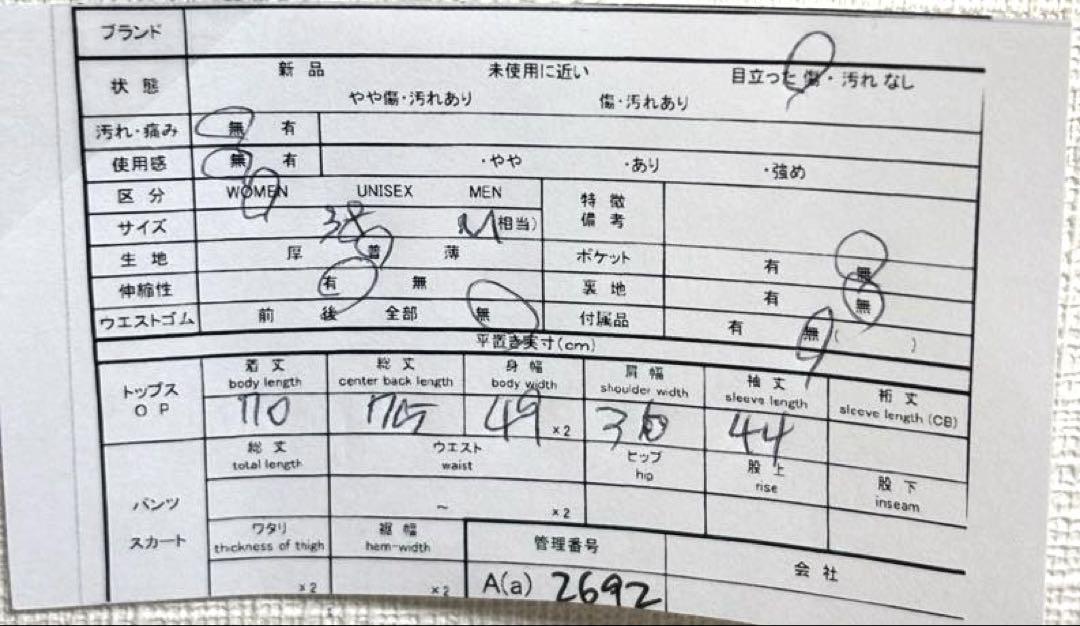 ブランド
状態 新品 未使用に近い 目立った傷・汚れなし
やや傷・汚れあり 傷・汚れあり
汚れ・痛み 無 有
使用感 無 有 ・やや ・あり ・強め
区分 WOMEN UNISEX MEN 特徴
備考
サイズ 38 M相当)
生地 厚 普 薄 ポケット 有 無
伸縮性 有 無 裏地 有 無
ウエストゴム 前 後 全部 無 付属品 有 無( )
平置き実寸(cm)
トップス
OP
着丈 総丈 身幅 肩幅 袖丈 裄丈
body length center back length body width shoulder width sleeve length sleeve length (CB)
110 115 49 ×2 36 44
パンツ
スカート
総丈 ウエスト ヒップ 股上 股下
total length waist hip rise inseam
~ ×2
ワタリ 裾幅 管理番号 会社
thickness of thigh hem-width
×2 ×2 A(a) 2692